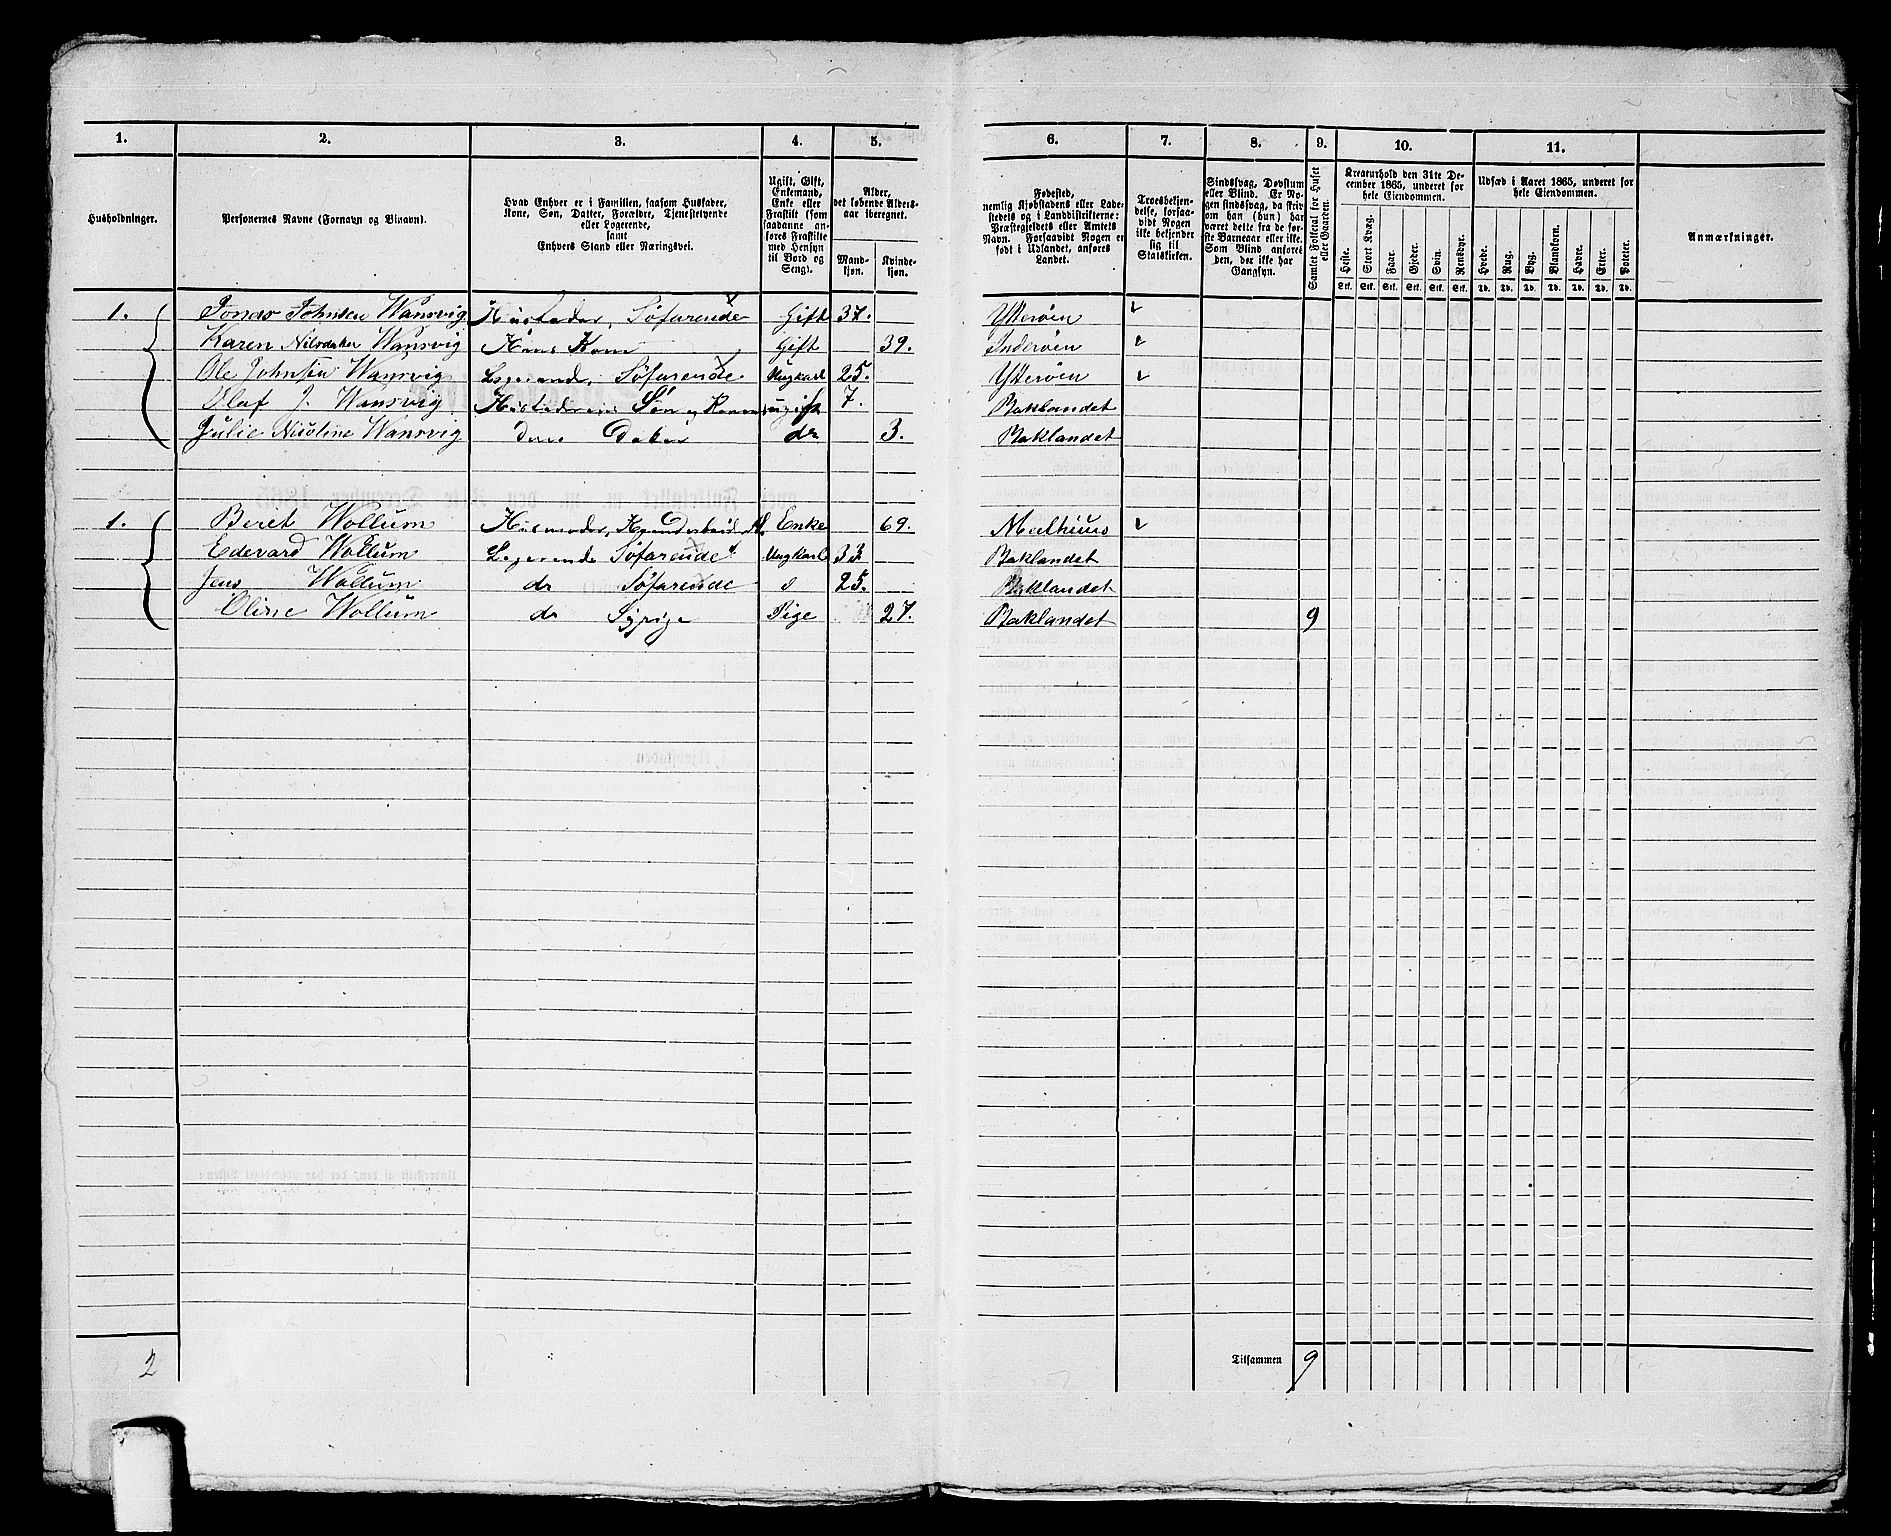 1. 2. 3. 4. 5. 6. 7. 8. 9. 10. 11.
Husholdninger.
Personernes Navne (Fornavn og Binavn).
Hvad Enhver er i Familien, saasom Husfader,
Kone, Søn, Datter, Forældre, Tjenestetyende
eller Logerende,
samt
Enhvers Stand eller Næringsvei.
Ugift, Gift,
Enkemand,
Enke eller
Fraskilt (som
saadanne an-
føres Fraskilte
med Hensyn
til Bord og
Seng).
Alder,
det løbende Alders-
aar iberegnet.
Mand-
kjøn.
Kvinde-
kjøn.
Fødested,
nemlig Kjøbstadens eller Lade-
stedets og i Landdistrikterne:
Præstegjeldets eller Amtets
Navn. Forsaavidt Nogen er
født i Udlandet, anføres
Landet.
Troesbekjen-
delse, forsaa-
vidt Nogen
ikke bekjender
sig til
Statskirken.
Sindssvag, Døvstum
eller Blind. Er No-
gen sindssvag, da skriv
om han (hun) har
været dette fra de før-
ste Barneaar eller ikke.
Som Blind anføres
den, der ikke har
Gangsyn.
Samlet Folketal for Huset
eller Gaarden.
Kreaturhold den 31te De-
cember 1865, underet for
hele Eiendommen.
Heste. Stort Kvæg. Faar. Gjeder. Svin. Rensdyr.
Stk. Stk. Stk. Stk. Stk. Stk.
Udsæd i Aaret 1865, underet for
hele Eiendommen.
Hvede. Rug. Byg. Blandkorn. Havre. Erter. Poteter.
Td. Td. Td. Td. Td. Td. Td.
Anmærkninger.
1. Jonas Johnsen Wansvig Husfader, Søfarende Gift 37. Ytterøen
Karen Nilsdater Wansvig Hans Kone Gift 39. Inderøen
Ole Johnsen Wansvig Logerende, Søfarende Ungkarl 25. Ytterøen
Olaf J. Wansvig Søn ugift 7. Baklandet
Julie Nicoline Wansvig Dater do 3. Baklandet
1. Beret Wollum Husmoder, Enke 69. Melhuus
Edevard Wollum Logerende Søfarende Ungkarl 33 Baklandet
Jens Wollum do Søfarende 25. Baklandet
Oline Wollum do Syrige Pige 27. Baklandet 9
2 Tilsammen 9